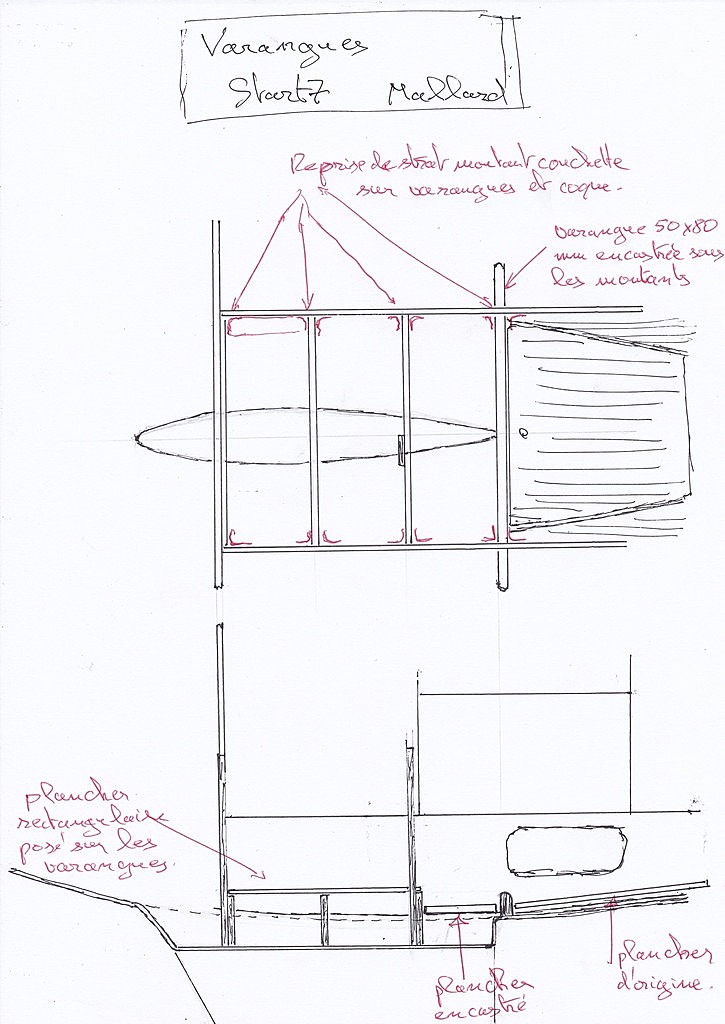 Varangues
Start7 Mallard
Reprise de strat montant couchette
sur varangues et coque.
varangue 50x80
mm encastrée sous
les montants
plancher
rectangulaire
posé sur les
varangues.
plancher
encastré
plancher
d'origine.